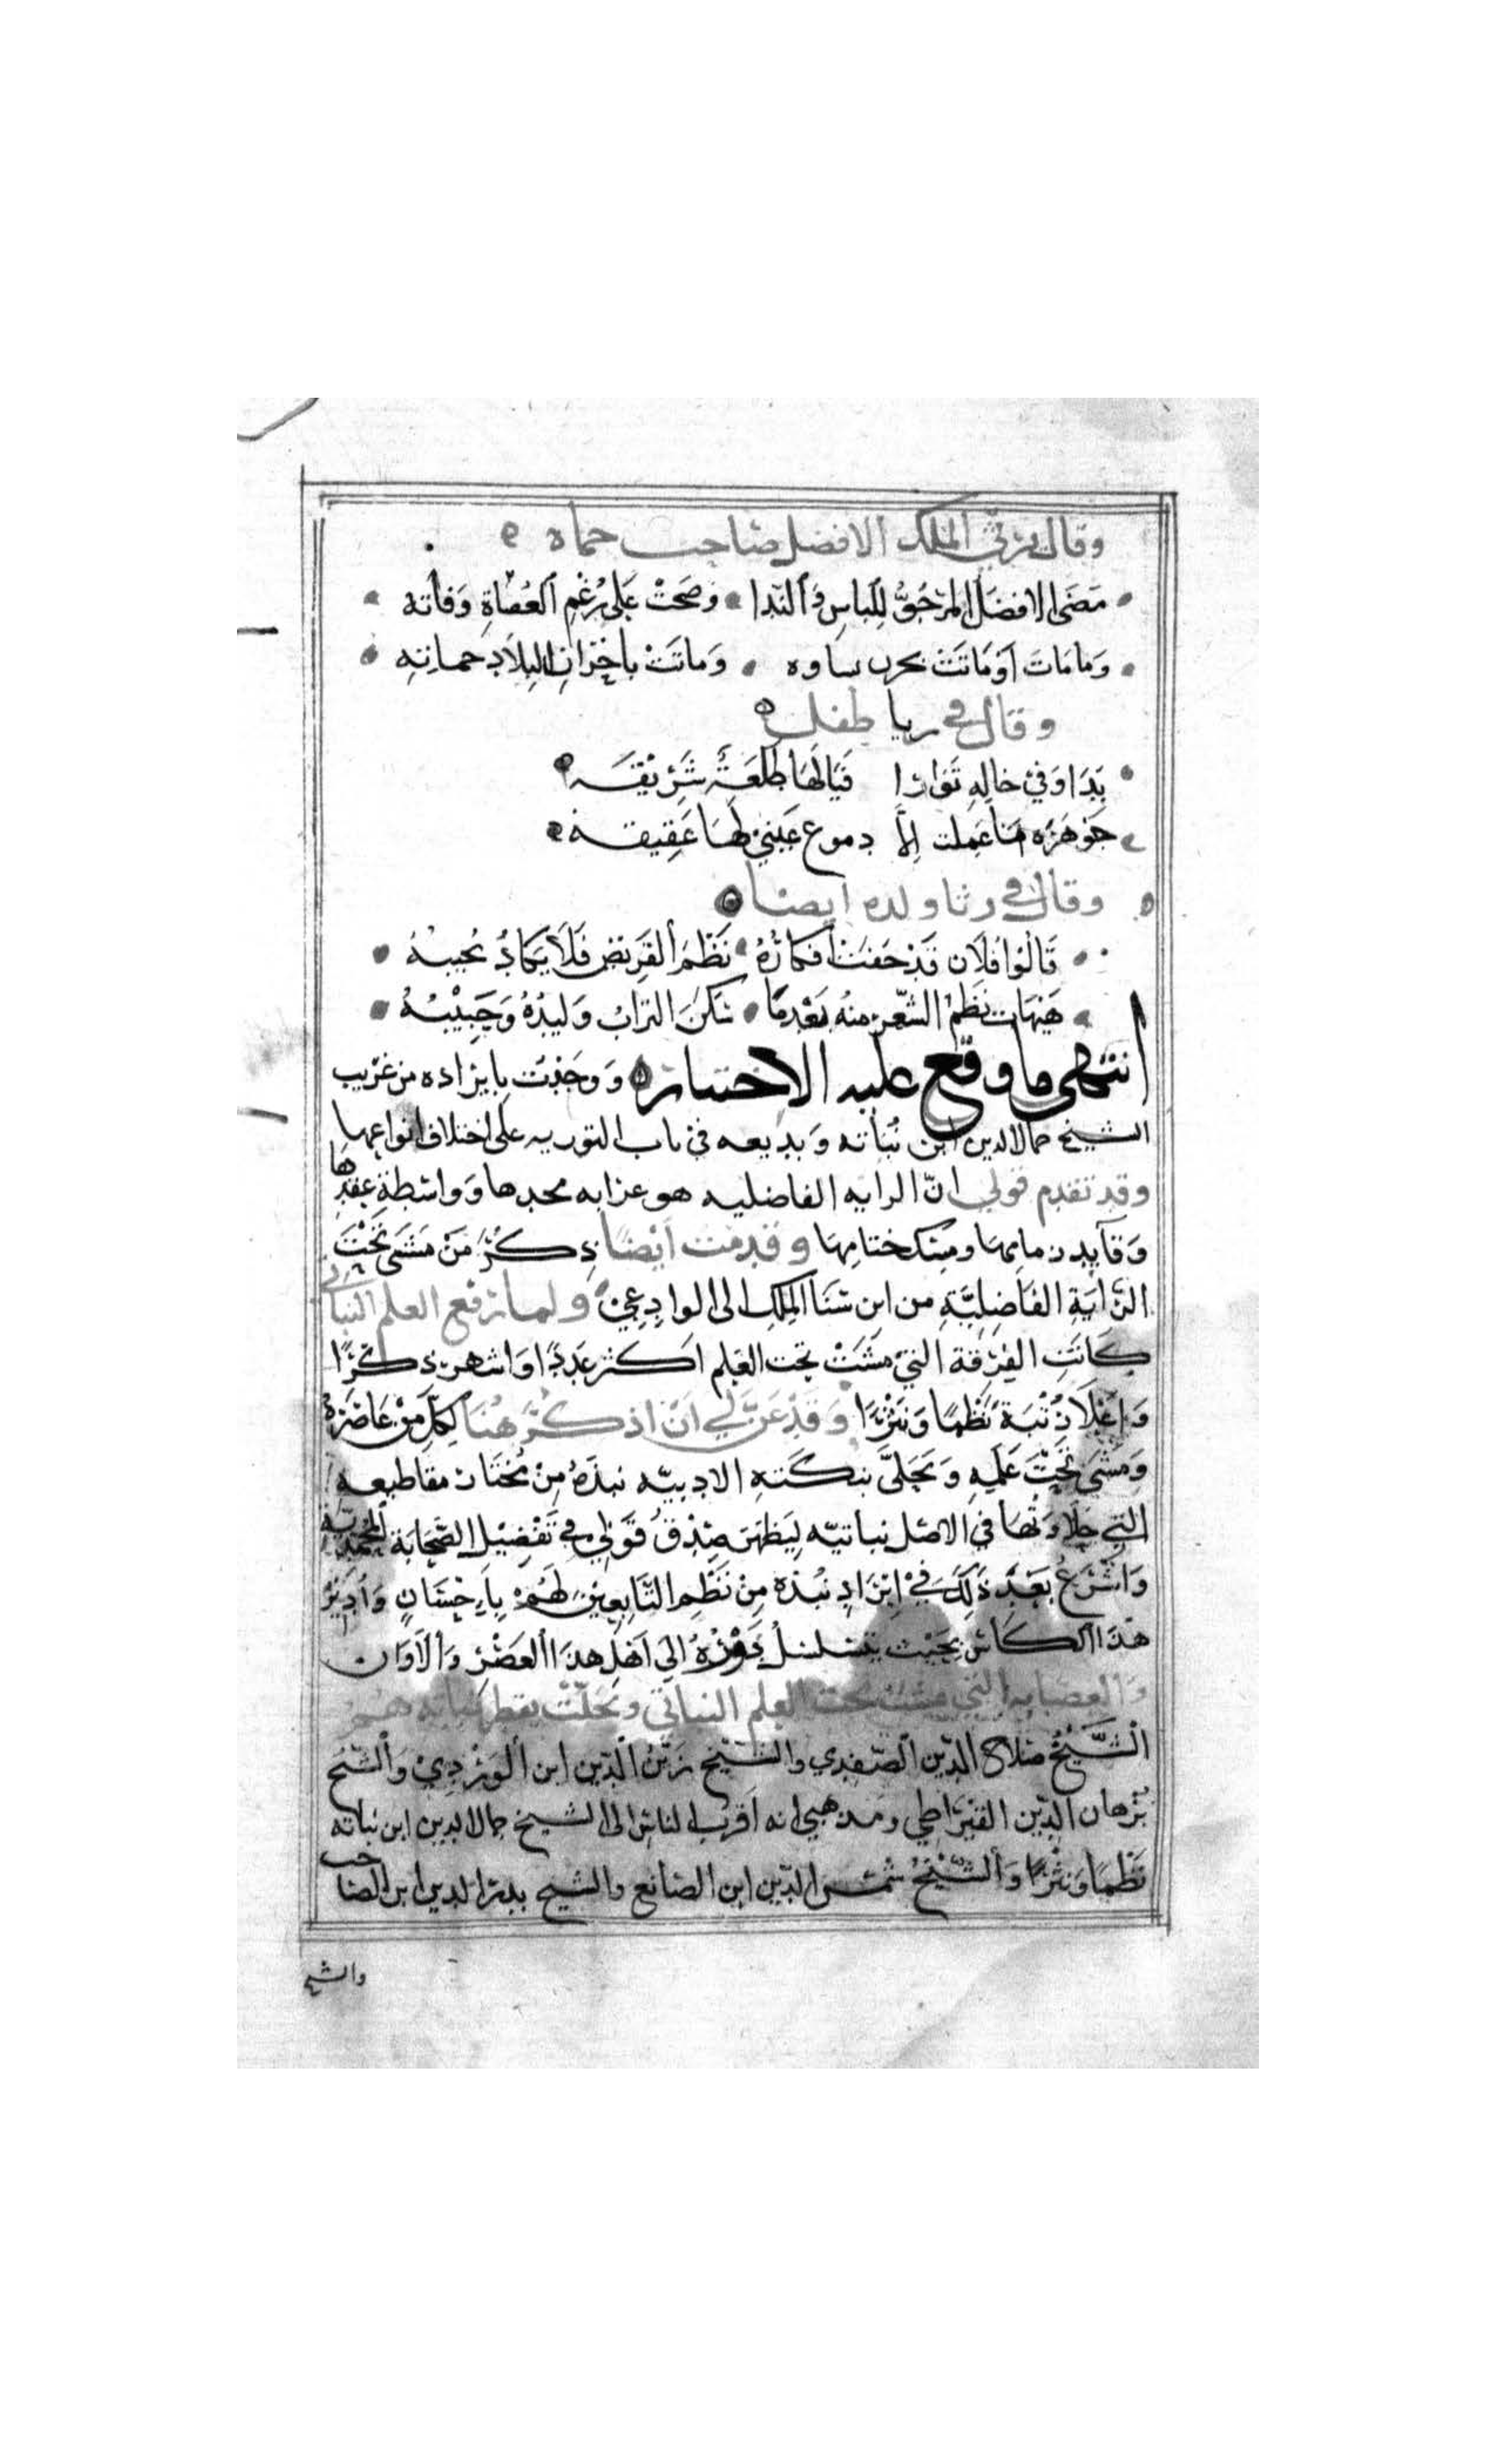 وقال يرثي الملك الافضل صاحب حماه
مَضَى الافضَل المَرْجُوُّ لِلبَاسِ وَالنَّدا وَصَحَتْ عَلى رُغْمِ العُصَاةِ وَفاته
وَمامَاتَ اَوْ مَاتَتْ بحزن ساوه وَماتَتْ باحْزانِ البِلاَدِ حماتهِ
وقال في طفل
بَدَا وَفي حَالِهِ تَوَارَا فَيَا لَهَا طَلْعَةً شَرِيْقَه
جَوْهَرَه مَا عَمِلت إلاَّ دموع عَيْني لهَا عَقِيقه
وقال في رثا ولده ايضا
قَالُوا فُلَان قَدْ جَفَتْ اَفْكَارُهُ نَظْمَ القَرِيْضِ فَلاَ يَكَادُ يُجيبُهُ
هَيْهَات نَظْمُ الشّعْرِ منهُ بَعْدِمَا سَكَنَ الترابُ وَليْدُهُ وَحَبِيْبُهُ
انتهى ما وقع عليه الاختياره من غريب
الشيخ جمال الدين ابن نُبَاته وَبديعه في باب التوريه على اختلاف انواعها
وقد تقدم قولي انّ الرايه الفاضليه هو عرابه مجدها وَوَاسْطَةِ عِقْدِهَا
وَقَآيِد زمامِهَا ومِسْك ختامهَا وقدمت اَيْضًا ذِكْرُ مَنْ مَشَى تَحْتَ
الرَّايَةِ الفَاضِليَّةِ من ابن سَنَا المُلكِ الى الوادِعِيْ ولما رفع العلم النباتي
كَانَتِ الفِرْقَة التيْ مَشَتْ تحت العَلم اَكثر عَدَدًا وَاشهر ذكْرًا
وَاَعْلَا رُتْبَة نَظْمًا وَنَثْرًا وَقَدْ عَنَّ لِي اَنْ اذكُرَ هُنَا لِكلّ مِنْ عَاصَرَهُ
وَمَشَى تَحْتَ عَلَمِهِ وَتَحَلَّى بنكَتهِ الادبيّه نبذَهُ مِنْ مُختَار مقاطيعه
التي حَلَاوَتُهَا في الاصْل نباتيّه لِيَظهَرَ صِدْقُ قَوْلِي في تَفْضِيْل الصَّحَابَة المُحَمَّديَّة
وَاشْرَعُ بَعْدَ ذَلِكَ فيْ اِيْرَادِ نُبْذه مِنْ نَظْمِ التَّابِعِيْنَ لَهُمْ بِاِحْسَانٍ وَاُدِيْرُ
هذَا الكَاسَ بِحَيْث يَتَسَلسَلُ دَوْرُهُ اِلى اَهْلِ هذَا العَصْرِ وَالاَوَان
وَالعصَابه التي مشَت تحت العلم النباتي وتَحَلّتْ بقطر نباته هُمْ
الشَّيْخُ صَلاح الدِّين الصَّفدِي والشّيْخ زَيْنُ الدِّين ابن الوَرْدِيْ وَالشّيْخ
بُرْهان الدِّين القيْرَاطِي ومَذهبي انه اَقْرب الناس الى الشيخ جمال الدين ابن نباته
نَظْمًا وَنَثْرًا وَالشَّيْخُ شَمْس الدِّين ابن الصَائغ والشيخ بدر الدين ابن الصَاحب
والشيخ